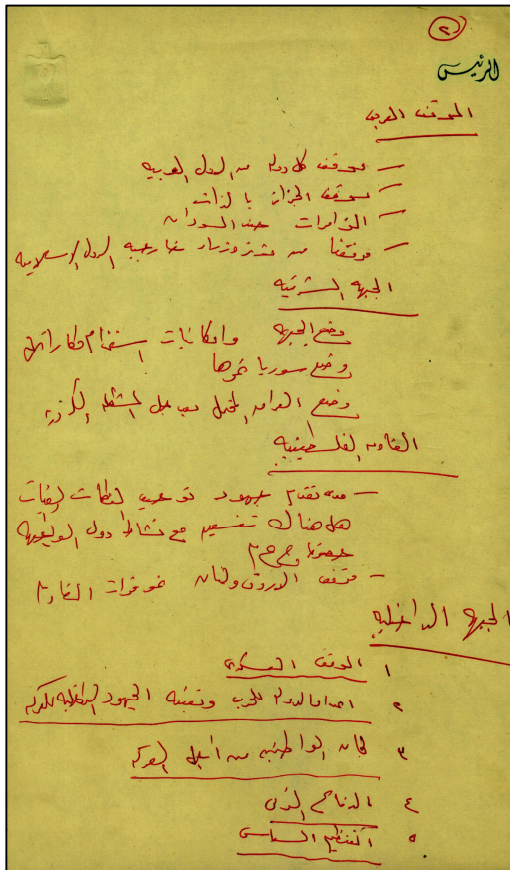 ٢
الرئيس
الموقف العربى
— موقف كل دولة من الدول العربيه
— موقف الجزائر بالذات
— المؤامرات ضد السودان
— موقفنا من مؤتمر وزراء خارجيه الدول الاسلاميه
الجبهه الشرقيه
وضع الجبهه وامكانيات استخدام
وضع سوريا
وضع العراق بعد حل المشكله الكرديه
المقاومه الفلسطينيه
— مدى تقدم جهود توحيد المنظمات
هل هناك تنسيق مع نشاط دول المواجهه
خصوصا ج ع م
— موقف الاردن ولبنان نحو قوات المقاومة
الجبهه الداخليه
١ الموقف العسكرى
٢ اعداد الدوله للحرب وتعبئه الجهود الداخليه للمعركه
٣ لجان المواطنين من أجل المعركه
٤
٥ التنظيم السياسى